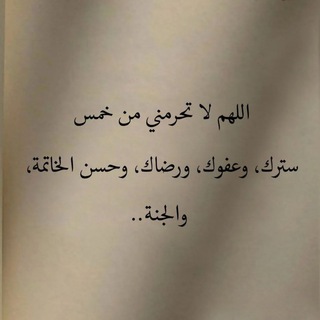 اللهم لا تحرمني من خمس
سترك، وعفوك، ورضاك، وحسن الخاتمة،
والجنة..